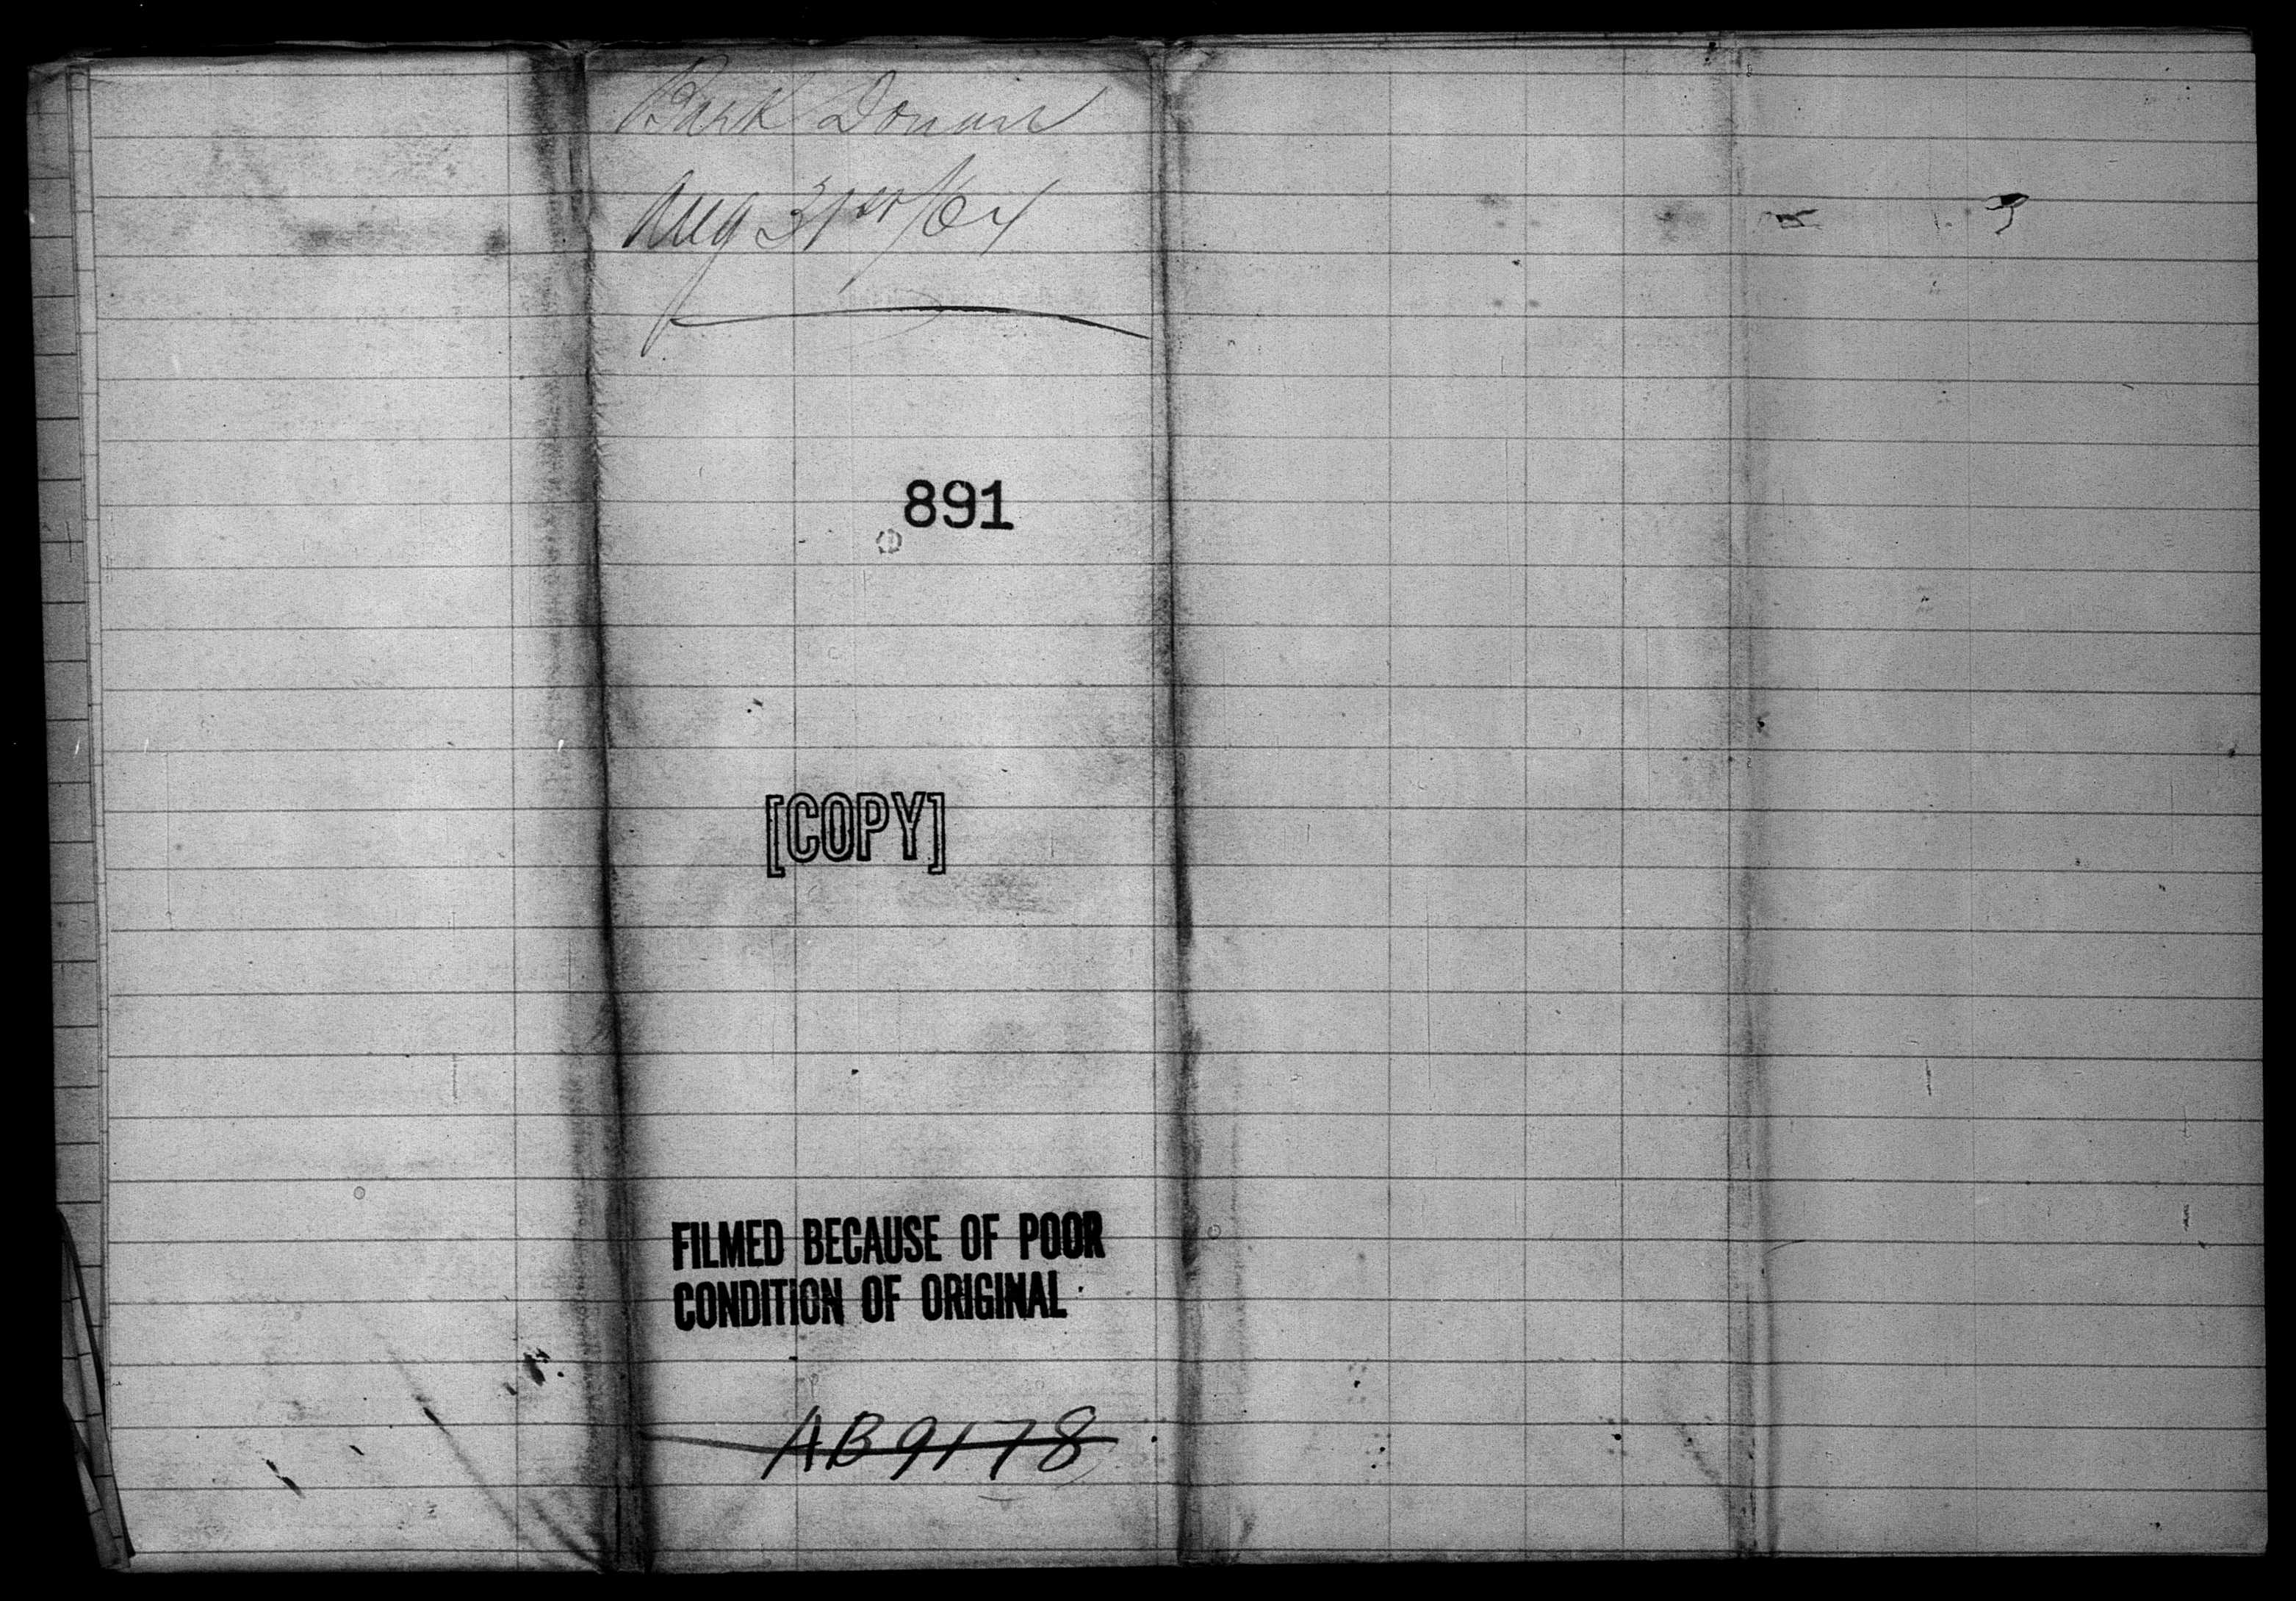 Bark
Aug 31st/64
891
[COPY]
FILMED BECAUSE OF POOR
CONDITION OF ORIGINAL
AB9178